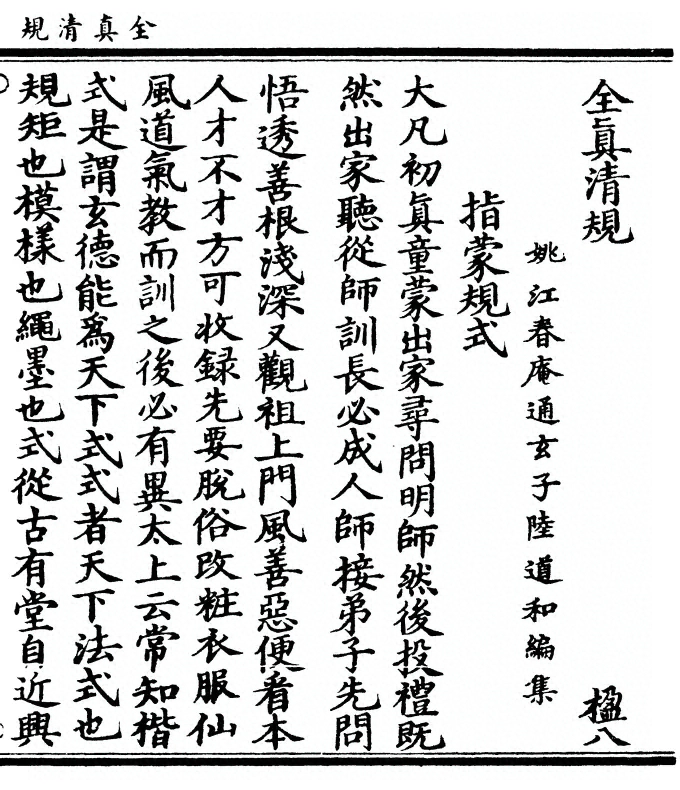 全真清規
全眞清規　楹八
姚江春庵通玄子陸道和編集
指蒙規式
大凡初眞童蒙出家尋問明師然後投禮既
然出家聽從師訓長必成人師接弟子先問
悟透善根淺深又觀祖上門風善惡便看本
人才不才方可收録先要脫俗改粧衣服仙
風道氣教而訓之後必有異太上云常知楷
式是謂玄德能爲天下式式者天下法式也
規矩也模樣也繩墨也式從古有堂自近興